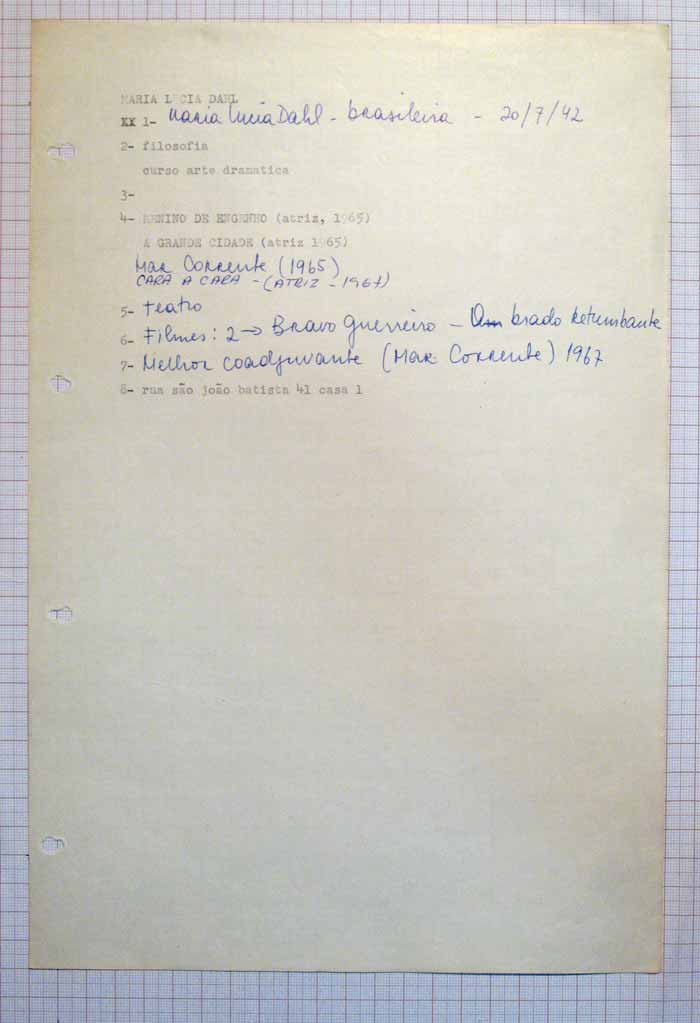 MARIA LUCIA DAHL
XX 1- Maria Lucia Dahl - brasileira - 20/7/42
2- filosofia
curso arte dramatica
3-
4- MENINO DE ENGENHO (atriz, 1965)
A GRANDE CIDADE (atriz 1965)
Mar Corrente (1965)
CARA A CARA - (ATRIZ - 1967)
5- teatro
6- Filmes: 2 → Bravo guerreiro - Um brado retumbante
7- Melhor coadjuvante (Mar Corrente) 1967
8- rua são joão batista 41 casa 1